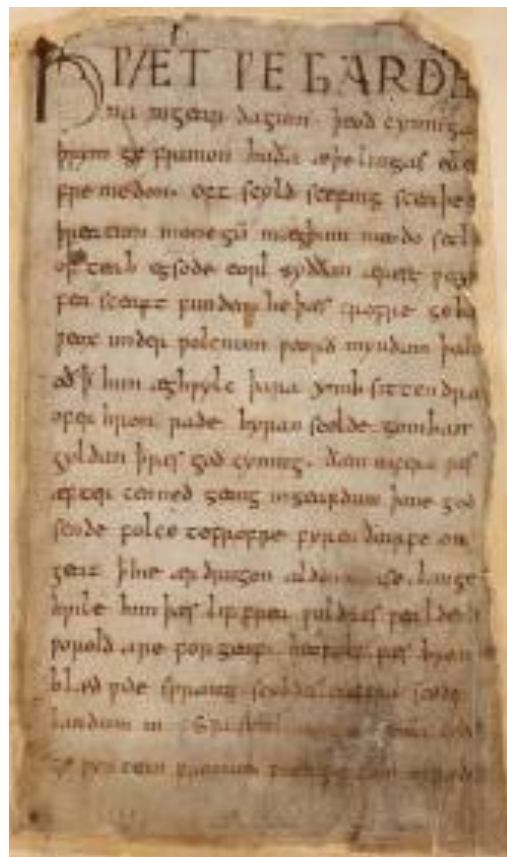 HǷÆT ǷE GARDE
na ingear dagum. þeod cyninga
þrym ge frunon huða æþelingas elle
fre medon. oft scyld scefing sceaþe
þreatum monegū mægþum meodo setla
of teah egsode eorl syððan ærest ƿear
fea sceaft funden he þæs frofre geba
ƿeox under ƿolcnum ƿeorð myndum þah
oð ꝥ him æghƿylc þara ymb sittendra
ofer hron rade hyran scolde gomban
gyldan þæs god cyning. ðæm eafera ƿæs
æfter cenned geong ingeardum þone god
sende folce tofrofre fyren ðearfe on
geat ꝥ hie ær drugon aldor ase. lange
hƿile him þæs liffrea ƿuldres ƿealdend
ƿorold are for geaf. beoƿulf ƿæs breme
blæd ƿide sprang scyldes eafera scede
landum in